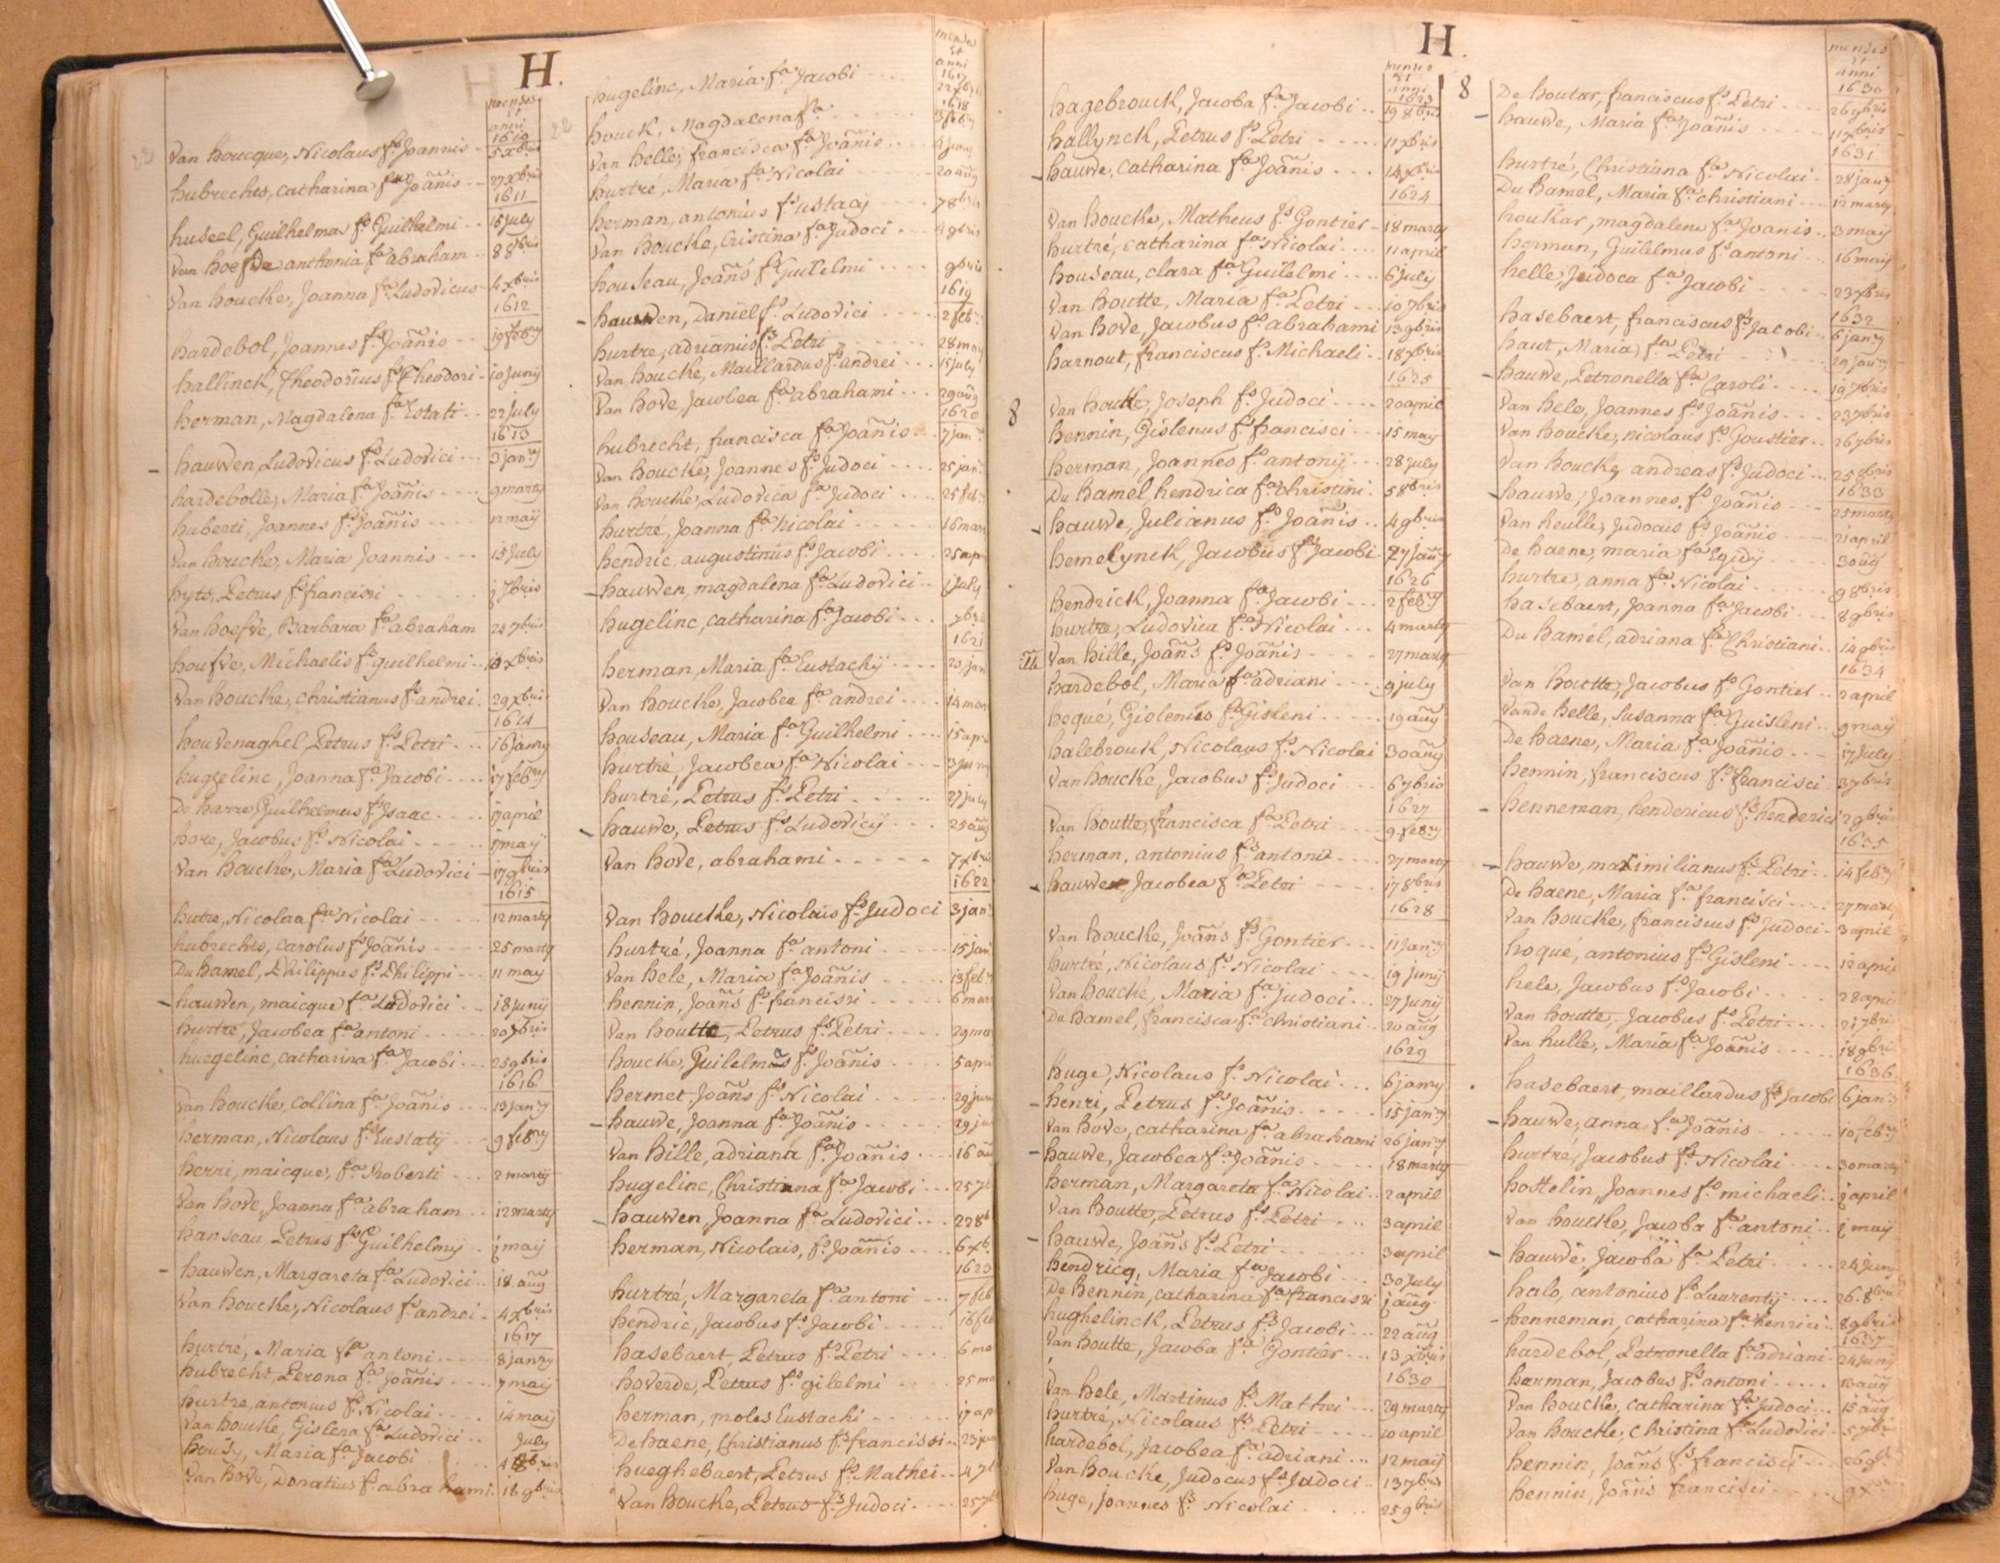 H.
menses
et
anni
1610
Van houcque, Nicolaus fs Joannis - 5 xbris
hubrechts, catharina fa Joãnis - - 27 xbris
1611
huseel, Guilhelma fa Guilhelmi - - 15 july
Van hoefve anthonia fa abraham - - 8 8bris
Van houcke, Joanna fa Ludovicus - 4 xbris
1612
hardebol, Joannes fs Joãnis - - 19 feb:y
hallinck, Theodorius fs Theodori - 10 junij
herman, Magdalena fa Estati - - 22 july
1613
hauwen, Ludovicus fs Ludovici - - - 3 janry
hardebolle, Maria fa Joãnis - - - - 9 marty
huberti, Joannes fs Joãnis - - - - 12 maij
Van houcke, Maria Joannis - - - 15 July
hyts, Petrus fs francisci - - - - - j 7bris
Van hoefve, Barbara fa abraham 24 7bris
houfve, Michaelis fs guilhelmi - - 10 xbris
Van houcke, christianus fs andrei - 29 xbris
1614
houvenaghel, Petrus fs Petri - - - 16 janry
hugzelinc, Joanna fa Jacobi - - - - 17 feb:ry
De harre Guilhelmus fs Isaac - - - - 17 april
hore, Jacobus fs Nicolai - - - - - j maij
Van houcke, Maria fa Ludovici - 17 9bris
1615
hutre, Nicolaa fa Nicolai - - - - - 12 marty
hubrechts, carolus fs Joãnis - - - - 25 marty
Du hamel, Philippus fs Philippi - - - 11 may
hauwen, maicque fa Ludovici - - - 18 junij
hurtré, Jacobea fa antoni - - - - 20 7bris
huegelinc, catharina fa Jacobi - - - 25 9bris
1616
Van houcke, collina fa Joãnis - - - 13 jan:y
herman, Nicolaus fs Eustatij - - - 9 feb:y
herri, maicque, fa Roberti - - - 2 martij
Van hove, Joanna fa abraham - - 12 marty
hanseau Petrus fs Guilhelmij - j maij
hauwen, Margareta fa Ludovici - - 18 aũg
Van houcke, Nicolaus fs andrei - 4 xbris
1617
hurtré, Maria fa antoni - - - - - 8 janry
hubrecht, Perona fa Joãnis - - - - 7 maij
hurtre, antonius fs Nicolai - - - - 14 maij
Van houcke, Gislena fa Ludovici - - - July
housy, Maria fa Jacobi - - - 4 8bris
Van hove, Donatius fs abrahami - 16 9bris
menses
et
anni
1617
hugelinc, Maria fa Jacobi - - - - 22 xbris
1618
houck, Magdalena fa - - - - - - 3 feb:y
Van helle, francisca fa Joãnis - - - 9 junij
hurtré, Maria fa Nicolai - - - - 20 aũg
herman, antonius fs ustacij - - - - 7 8bris
Van houcke, Cristina fa Judoci - - - 8 8bris
houseau, Joãns fs Guilelmi - - - - 9bris
1619
hauwen, Daniel fs Ludovici - - - - - 2 feb:
hurtre, adrianus fs Petri - - - - - - 28 may
Van houcke, Maillardus fs andrei - - - 15 july
Van hove, Jacobea fa abrahami - - - 29 aũg
1620
hubrecht, francisca fa Joãnis - - - 7 jan:
Van houcke, Joannes fs Judoci - - - - 25 jan:
Van houcke, Ludovica fa Judoci - - - 25 feb:
hurtre, Joanna fa Nicolai - - - - - 16 mart
hendric, augustinus fs Jacobi - - - - 25 apri
hauwen, magdalena fa Ludovici - - j July
hugelinc, catharina fa Jacobi - - - 7bris
1621
herman, Maria fa Eustachij - - - - 23 jan
Van houcke, Jacobea fa andrei - - - - 14 mar
houseau, Maria fa Guilhelmi - - - - 15 apri
hurtré, Jacobea fa Nicolai - - - 3 jun
hurtré, Petrus fs Petri - - - - - 27 july
hauwe, Petrus fs Ludovicij - - - 25 aũg
Van hove, abrahami - - - - - 7 xbris
1622
Van houcke, Nicolais fs Judoci 3 jan:
hurtré, Joanna fa antoni - - - - 15 jan
Van hele, Maria fa Joãnis - - - - - 13 feb:
hennin, Joãns fs francisci - - - - - 6 mar
Van houtte, Petrus fs Petri - - - - 29 mar
houcke, Guilelmus fs Joãnis - - - - 5 apri
hermet, Joãns fs Nicolai - - - - - 29 jun
hauwe, Joanna fa Joãnis - - - - - 29 jun
Van hille, adriana fa Joãnis - - - 16 aũ
hugelinc, Christinna fa Jacobi - - - 25 7b
hauwen Joanna fa Ludovici - - - 22 8b
herman, Nicolais, fs Joãnis - - - - 6 xb
1623
hurtré, Margareta fa antoni - - - 7 feb
hendric, Jacobus fs Jacobi - - - - 16 feb
hasebaert, Petrus fs Petri - - - - 6 mar
hoverde, Petrus fs gilelmi - - - - 25 mar
herman, moles Eustachi - - - - - 17 ap
De haene, Christianus fs francissi - - 23 jun
hueghebaert, Petrus fs Mathei - - 4 7b
Van houcke, Petrus fs Judoci - - - 25 7b
H.
menses
et
anni
1623
hagebrouck, Jacoba fa Jacobi - - 19 8bris
hallynck, Petrus fs Petri - - - - - 11 xbris
hauwe, catharina fa Joãnis - - - 14 xbris
1624
Van houcke, Matheus fs Gontier - 18 marty
hurtre, catharina fa Nicolai - - - - 11 april
houseau, clara fa Guilelmi - - - - 6 july
Van houtte, Maria fa Petri - - - - 10 7bris
Van hove, Jacobus fs abrahami 13 9bris
harnout, franciscus fs Michaeli - - 18 xbris
1625
8 Van houtte, Joseph fs Judoci - - - - 20 april
hennin, Gislenus fs francisci - - - 15 may
herman, Joannes fs antonij - - - 28 july
Du hamel hendrica fa christini - 5 8bris
hauwe, Julianus fs Joãnis - - - 4 9bris
hemelynck, Jacobus fs Jacobi 27 janry
1626
hendrick, Joanna fa Jacobi - - - 2 feb:ry
hurtre, Ludovica fa Nicolai - - - 4 marty
Van hille, Joãns fs Joãnis - - - - 27 marty
hardebol, Maria fa adriani - - - 9 july
hoqué, Gislenus fs Gisleni - - - - 19 aũg
halebrouck, Nicolaus fs Nicolai 30 aũg
Van houcke, Jacobus fs Judoci - - - 6 7bris
1627
Van houtte, francisca fa Petri - - - 9 feb:y
herman, antonius fs antoni - - - - 27 marty
hauwe Jacobea fa Petri - - - - 17 8bris
1628
Van houcke, Joãns fs Gontier - - - 11 jan:y
hurtré, Nicolaus fs Nicolai - - - - 19 junij
Van houcke, Maria fa judoci - - - 27 junij
Du hamel, francisca fa christiani - - 20 aũg
1629
huge, Nicolaus fs Nicolai - - - 6 janry
henri, Petrus fs Joãnis - - - - - 15 jan:y
Van hove, catharina fa abrahami 26 jan:y
hauwe, Jacobea fa Joãnis - - - - - 18 marty
herman, Margareta fa Nicolai - - 2 april
Van houtte, Petrus fs Petri - - - 3 april
hauwe, Joãns fs Petri - - - - - 3 april
hendricq, Maria fa Jacobi - - - 30 July
De hennin, catharina fa francisci j aũg
hughelinck, Petrus fs Jacobi - - - 22 aũg
Van houtte, Jacoba fa Gontier - - - 13 xbris
1630
Van hele, Martinus fs Mathei - - - 29 marty
hurtré, Nicolaus fs Petri - - - - 10 april
hardebol, Jacobea fa adriani - - - 12 maij
Van houcke, Judocus fs Judoci - - 13 7bris
huge, joannes fs Nicolai - - - 25 9bris
menses
et
anni
1630
8 De houtar, franciscus fs Petri - - - - 26 7bris
hauwe, Maria fa Joãnis - - - - - 11 xbris
1631
hurtré, Christiana fa Nicolai - 28 janry
Du hamel, Maria fa christiani - - - 12 marty
houkar, magdalena fa Joanis - - 3 maij
herman, Guilelmus fs antoni - - - 16 maij
helle, Judoca fa Jacobi - - - - 23 xbris
1632
hasebaert, franciscus fs Jacobi - - 6 janry
haut, Maria fa Petri - - - - 29 janry
hauwe, Petronella fa Caroli - - - - 19 7bris
Van hele, Joannes fs Joãnis - - - 23 7bris
Van houcke, nicolaus fs Goustier - - 26 7bris
Van houcke, andreas fs Judoci - - - 25 9bris
1633
hauwe, Joannes fs Joãnis - - - 25 marty
Van heulle, Judocus fs Joãnis - - - - 21 april
De haene, maria fa Egidij - - - - 30 aũg
hurtre, anna fa Nicolai - - - - - 9 8bris
hasebaert, Joanna fa Jacobi - - - 8 9bris
Du hamel, adriana fa Christiani - - 14 9bris
1634
Van houtte, Jacobus fs Gontier - - 2 april
Vande helle, Susanna fa Guisleni - - 9 maij
De haene, Maria fa Joãnis - - - 17 July
hennin, franciscus fs francisci 3 7bris
henneman, hendericus fs henderici 29 9bris
1635
hauwe, maximilianus fs Petri - - 14 feb:y
De haene, Maria fa francisci - - - - 27 mart
Van houcke, franciscus fs Judoci - 3 april
hoque, antonius fs Gisleni - - - - 12 april
hele, Jacobus fs Jacobi - - - - 28 april
Van houtte, Jacobus fs Petri - - - - 21 7bris
Van hulle, Maria fa Joãnis - - - - - 18 9bris
1636
hasebaert, maillardus fs Jacobi 6 jan:
hauwe, anna fa Joãnis - - - - - 10 feb:y
hurtré, Jacobus fs Nicolai - - - - 30 marty
hottelin, Joannes fs michaeli - - 2 april
Van houcke, Jacoba fa antoni - - 2 maij
hauwe, Jacoba fa Petri - - - - 24 juny
halo, antonius fs Laurentij - - - - 26 8bris
henneman, catharina fa henrici - - 8 9bris
1637
hardebol, Petronella fa adriani - 24 junij
herman, Jacobus fs antoni - - - - 13 aũg
Van houcke, catharina fa Judoci - - 15 aũg
Van houcke, christina fa Ludovici - - 5 7bris
hennin, Joãns fs francisci - - - 26 9b
hennin, Joãns francisci